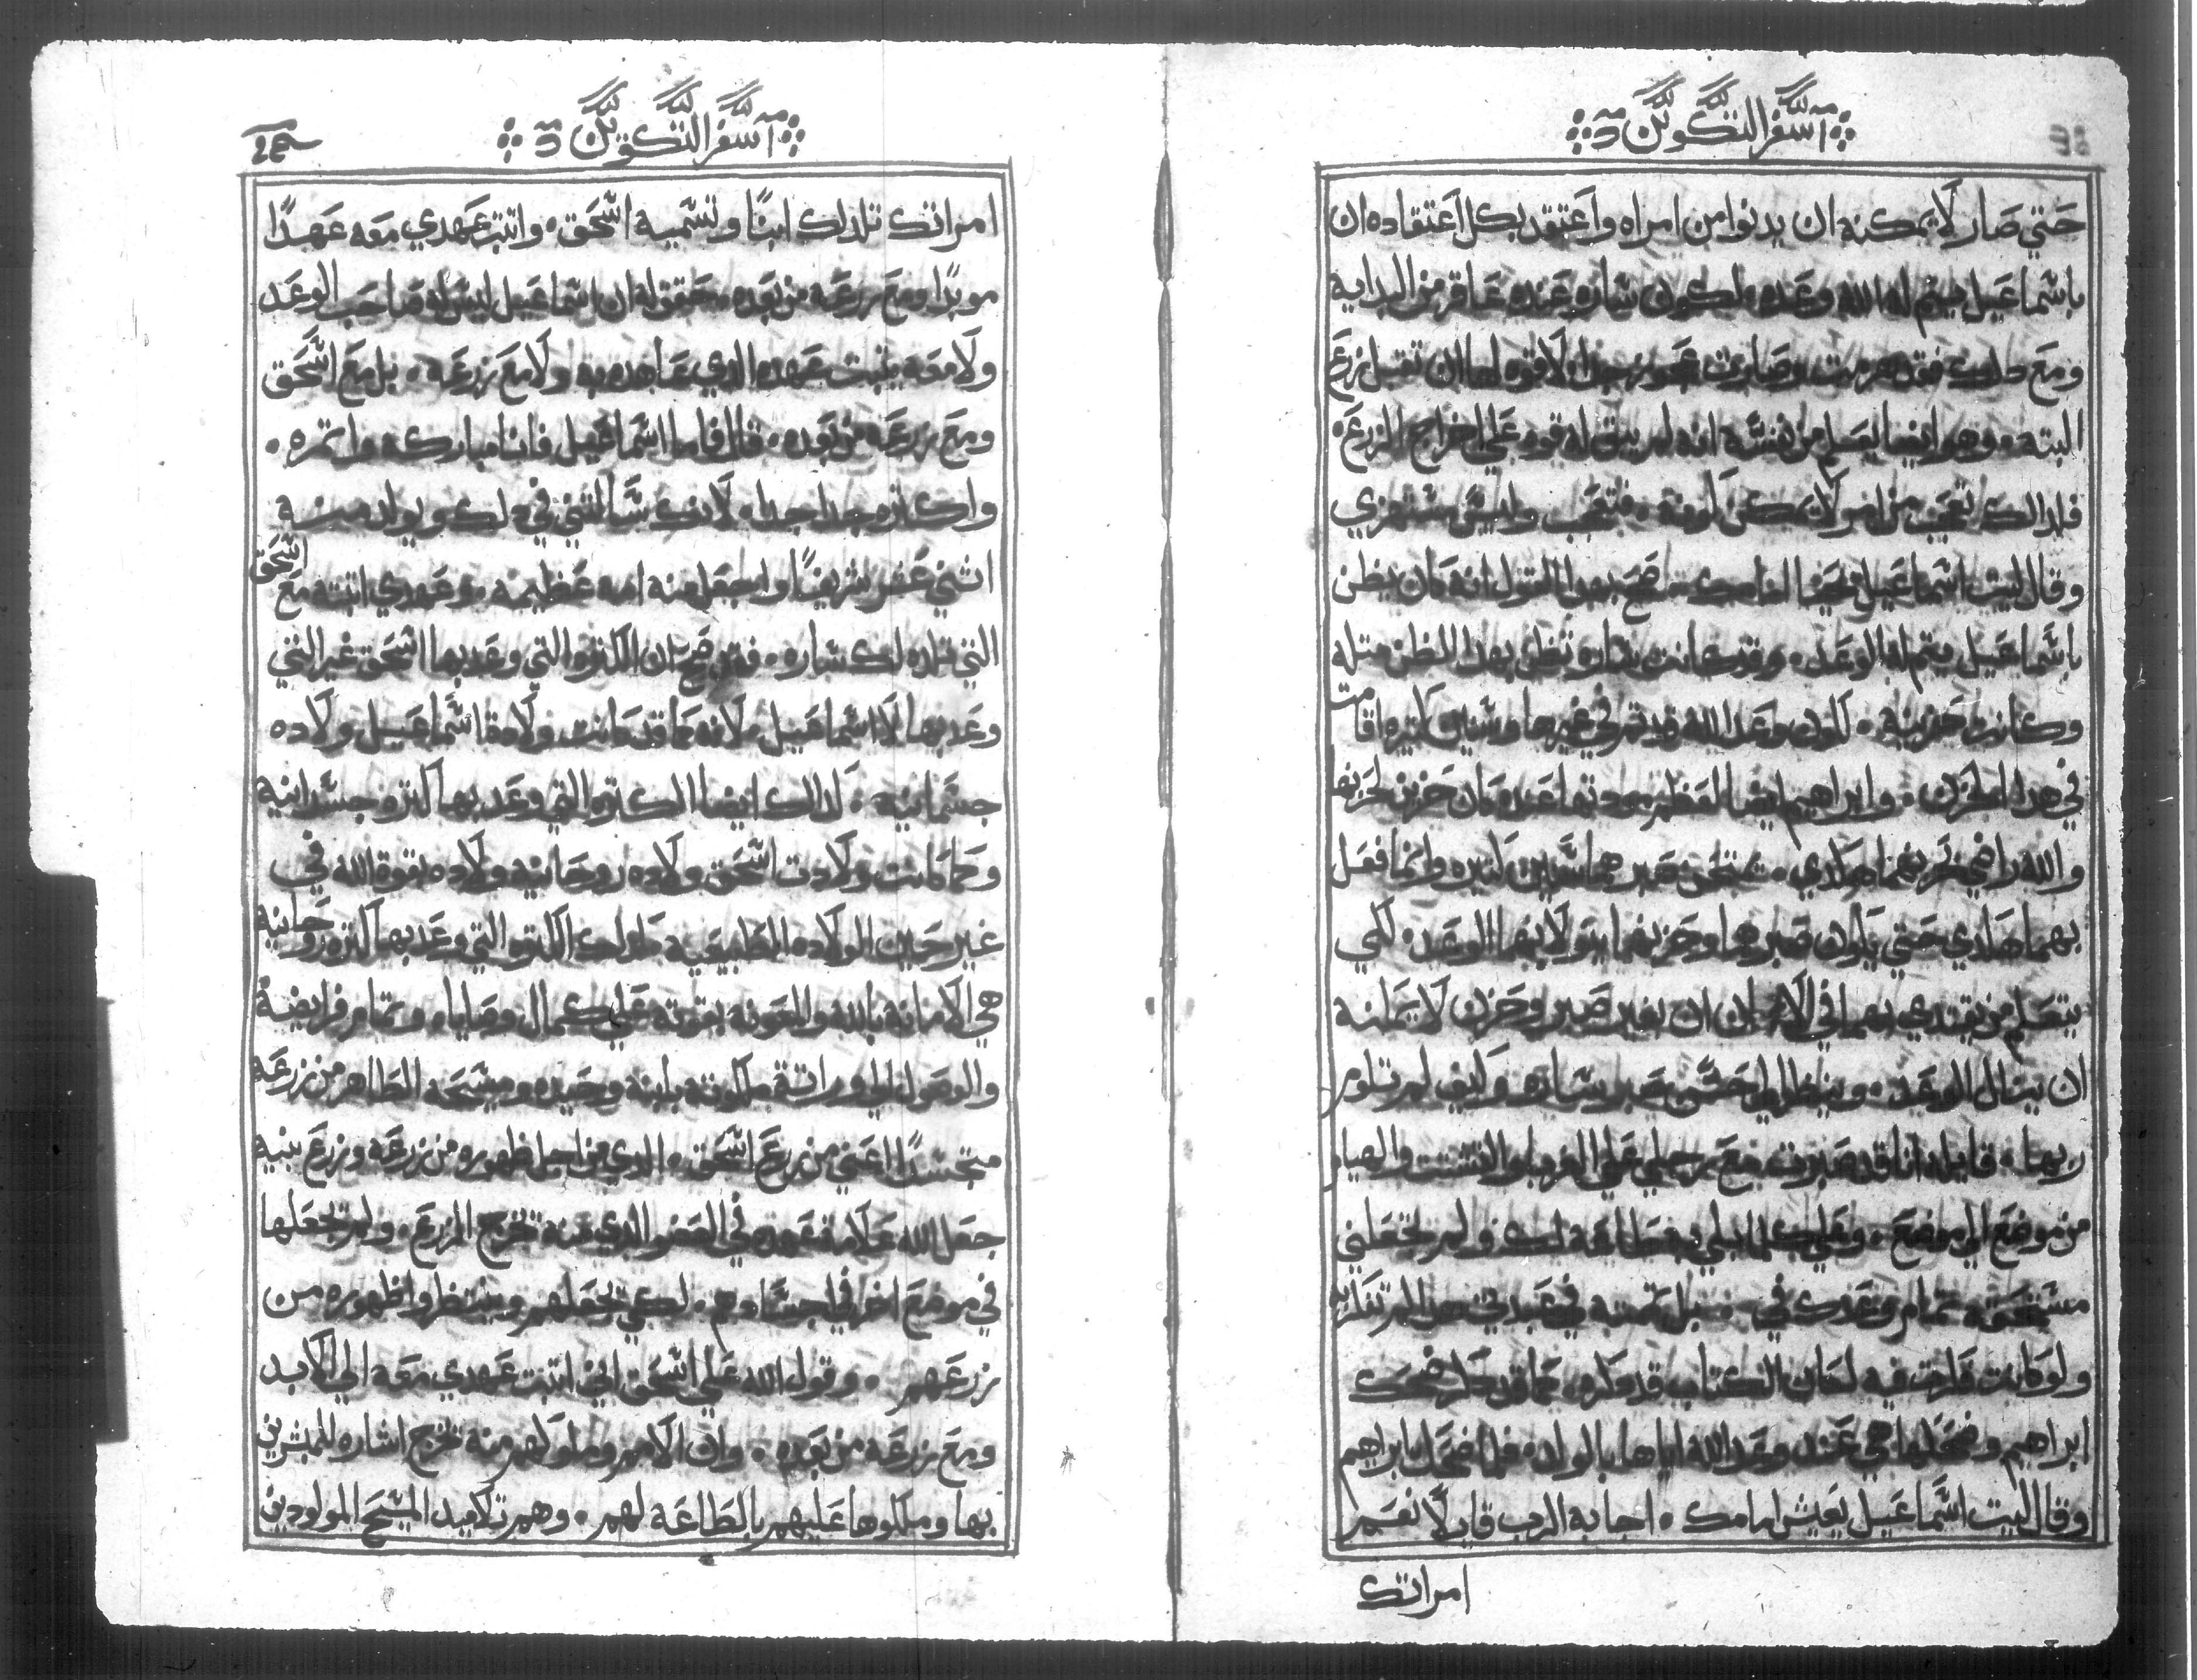 سفر التكوين
حتي صار لا يمكنه ان يدنوا من امراه واعتقد بكل اعتقاده ان
باشماعيل يتم له الله وعده لكون ساره عنده عاقر من البدايه
ومع دلك فقد هرمت وصارت عجوز جدا لا قوه لها ان تقبل زرع
البته. وهو ايضا يعلم من نفسه انه لم يبق له قوه علي اخراج الزرع
فلدالك تعجب من امر لا يمكن كونه. فتعجب وليس مستهزي
وقال ليت اسماعيل يحيا امامك. صح بهدا القول انه كان يظن
باسماعيل يتم له الوعد. وقد كانت ساره تظن بهدا الظن مثله
وكانت حزينه. لكون وعد الله قد تم في غيرها وسنين كثيره اقامت
في هدا الحزن. وابراهيم ايضا لعظم مودته لها عنده كان حزين لحزنها
والله راضي بحزنهما هادي. يمتحن صبرهما سنين كثيره وانما فعل
بهما هادي حتي يكون صبرهما وحزنهما يتولا بهما الوعد. لكي
يتعلم من يقتدي بهما في الايمان ان بغير صبر وحزن لا يمكنه
ان ينال الوعد. وينظر الي حسن صبر ساره وكيف لم تتلوم
ربها. قايله انا قد صبرت مع رجلي علي الغربه والتشتت والهيام
من موضع الي موضع. وعلي كلما بلي به طاعة لك ولم تجعلني
مستحقه تمام وعدك في. بل تممته في عبدتي هدا لم تتكلم به
ولو كانت فكرت فيه لكان الكتاب قد دكره. كما قد دكر ضحك
ابراهيم وضحكها هي عند وعد الله اياها بالولد. فلما ضحك ابراهيم
وقال ليت اسماعيل يعيش امامك. اجابه الرب قايلاً نعم
امراتك
سفر التكوين
امراتك تلد لك ابنًا وتسميه اسحق. واثبت عهدي معه عهدًا
موبدًا ومع زرعه من بعده. حقق له ان اسماعيل ليس له صاحب الوعد
ولا معه يثبت عهده الدي عاهده به ولا مع زرعه. بل مع اسحق
ومع زرعه من بعده. قال فاما اسماعيل فانا مباركه واثمره.
واكثره جدا جدا. لانك سالتني في دلك ويولد منه
اثني عشر شريفًا واجعل منه امه عظيمه. وعهدي اثبته مع اسحق
التي تلده لك ساره. فقد صح ان الكثره التي وعد بها اسحق غير التي
وعد بها لاسماعيل. لانه كما قد كانت ولادة اسماعيل ولاده
جسمانيه. لدالك ايضا الكثره التي وعد بها كثره جسدانيه
وكما كانت ولادت اسحق ولاده روحانيه ولاده بقوة الله في
غير حين الولاده الطبيعيه كدلك الكثره التي وعد بها كثره روحانيه
هي الامانه بالله والمعونه بقوته علي كمال وصاياه وتمام فرايضه
والوصول الي وراثة ملكوته بابنه وحيده ومسيحه الظاهر من زرعه
متجسدًا اعني من زرع اسحق. الدي من اجل ظهوره من زرعه وزرع بنيه
جعل الله علامة عهده في العضو الدي منه تخرج الزرع. ولم يجعلها
في موضع اخر في اجسادهم. لكي يحفظهم وينتظروا ظهوره من
زرعهم. وقول الله علي اسحق اني اثبت عهدي معه الي الابد
ومع زرعه من بعده. وان الامم وملوكهم منه تخرج اشاره للمبشرين
بها وملكوها عليهم بالطاعه لهم. وهم تلاميد المسيح المولودين